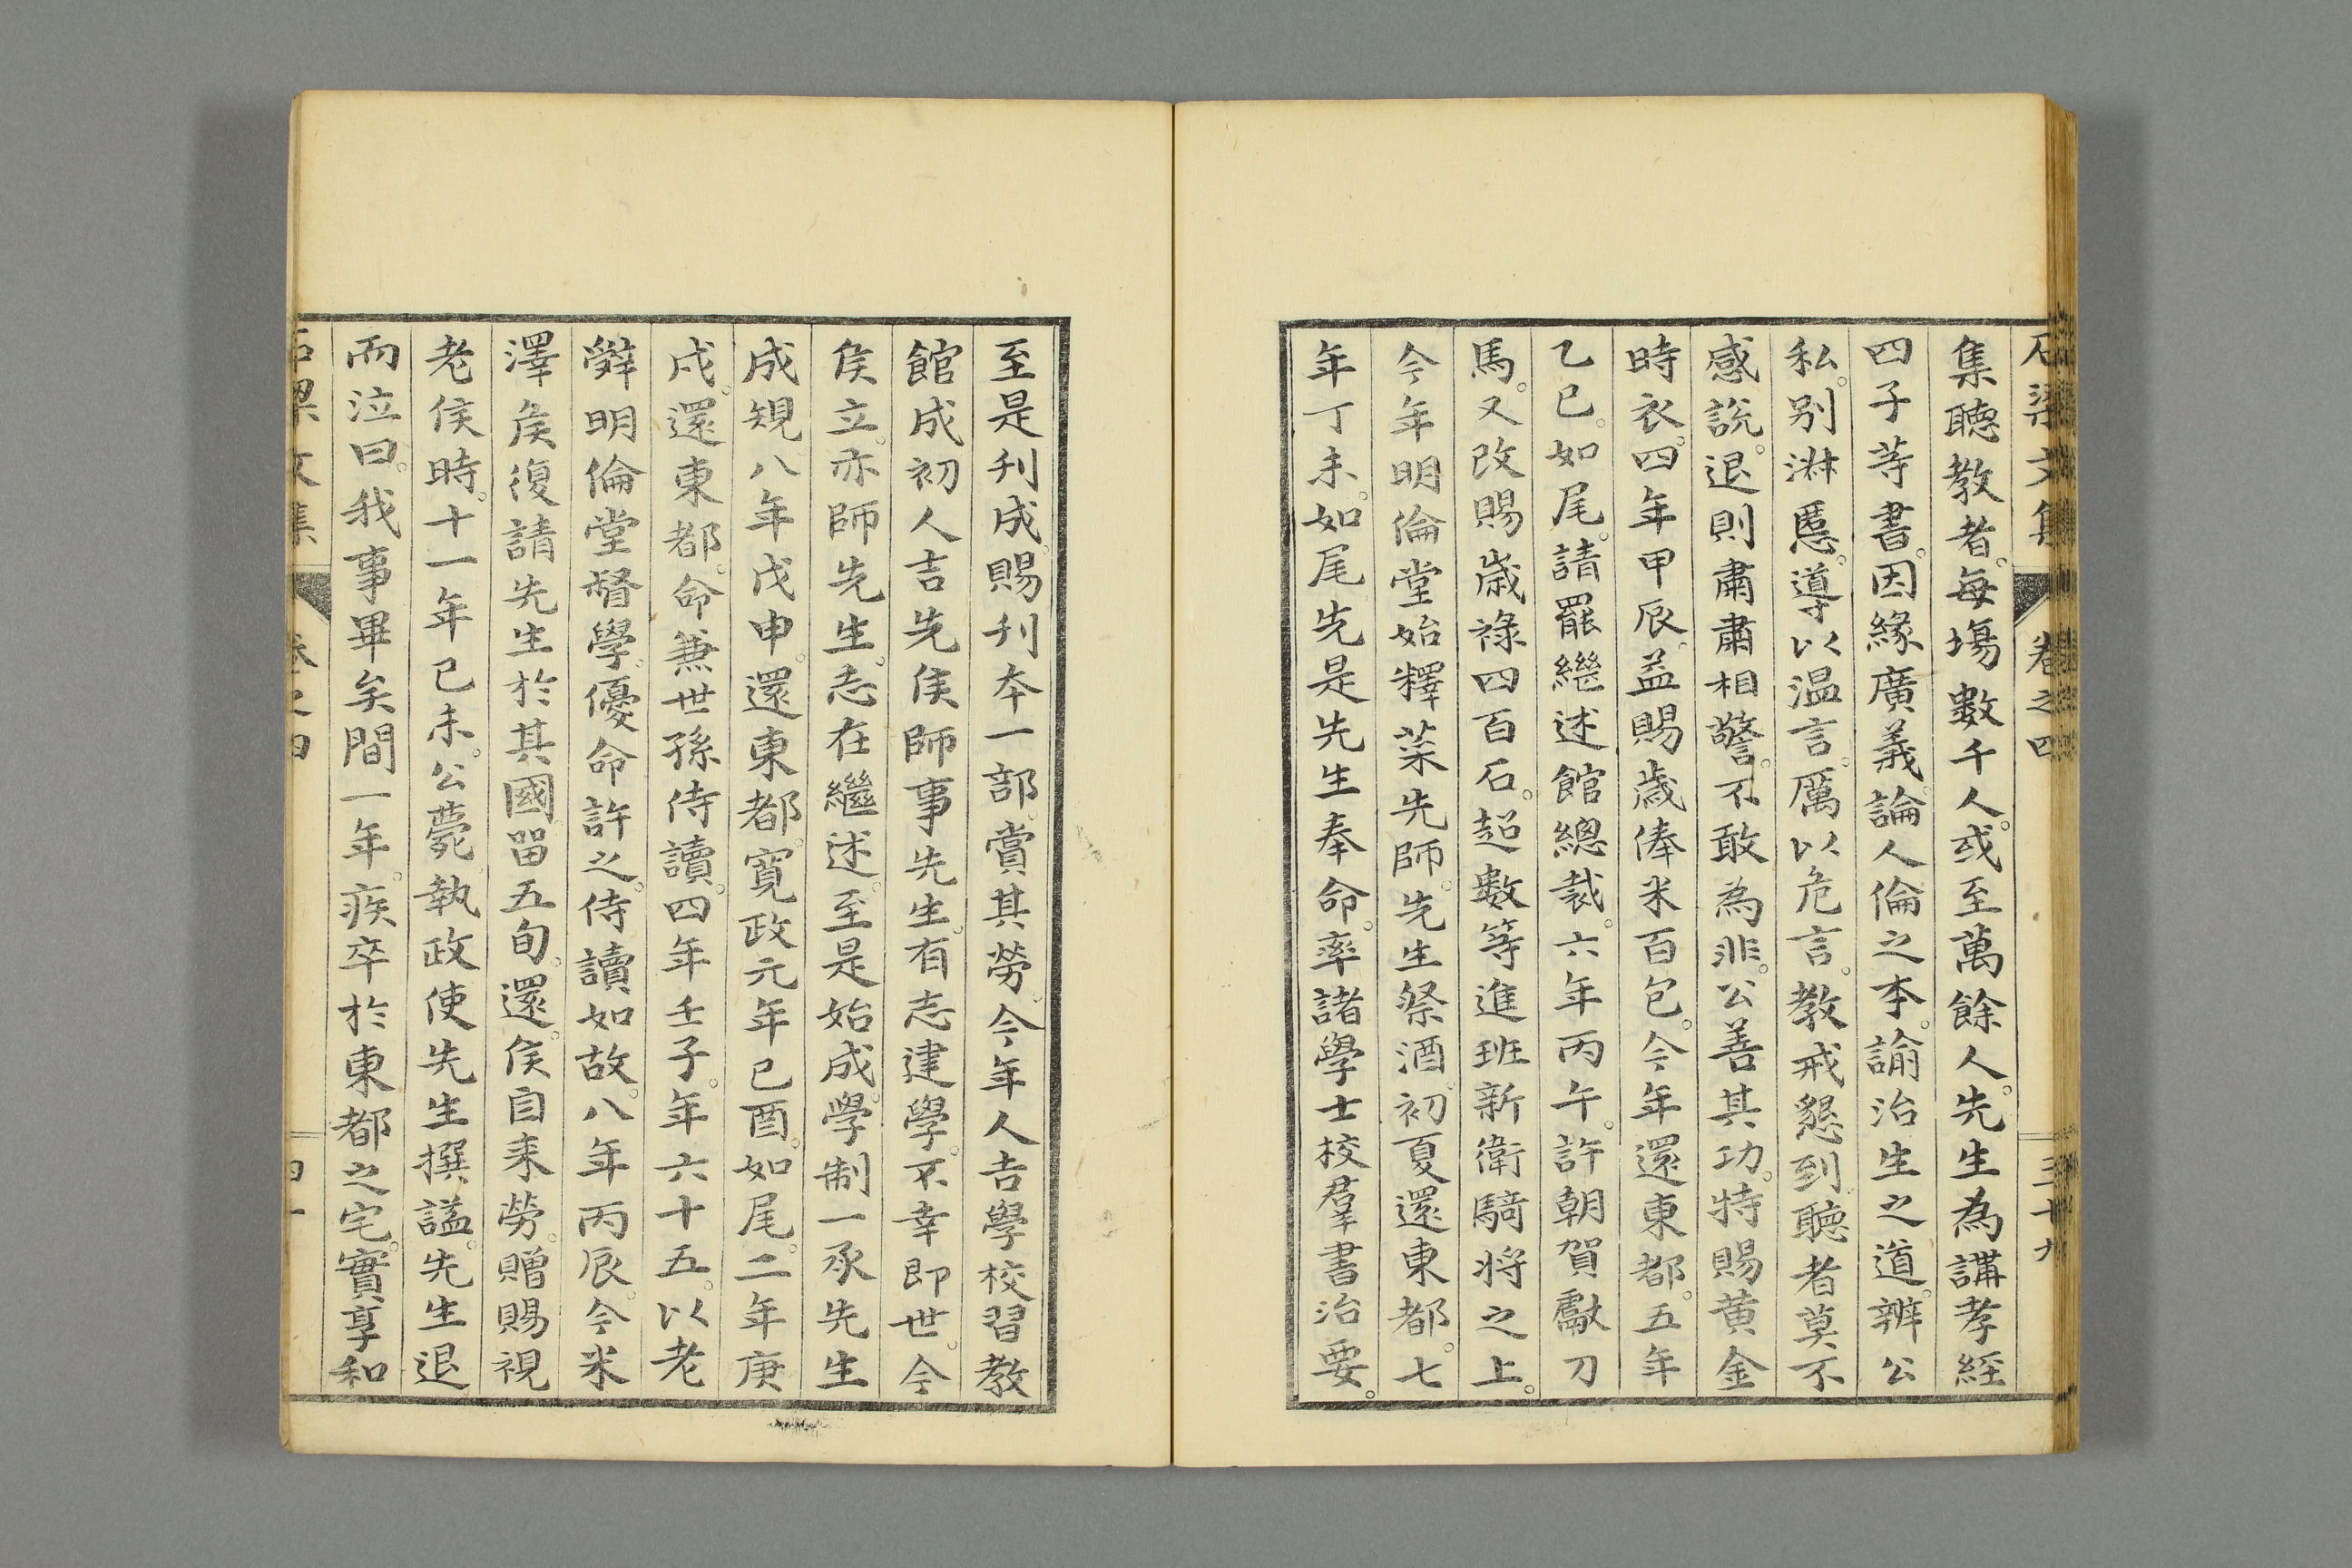 石梁文集　卷之四　三十九
集聴教者。每塲數千人。或至萬餘人。先生為講孝經
四子䓁書。因緣廣義。論人倫之本。諭治生之道。辨公
私。別淋慝。導以温言。厲以危言。教戒懇到。聴者莫不
感説。退則肅肅相警。不敢為非。公善其功。特賜黄金
時衣。四年甲辰。益賜歳俸米百包。今年還東都。五年
乙巳。如尾。請罷繼述館總裁。六年丙午。許朝賀獻刀
馬。又改賜歳祿四百石。超數等進班新衛騎将之上。
今年明倫堂始釋菜先師。先生祭酒。初夏還東都。七
年丁未。如尾先是先生奉命。率諸學士校羣書治要。
至是刋成。賜刋本一部。賞其勞。今年人吉學校習教
館成初人吉先侯師事先生。有志建學。不幸即世。今
侯立。亦師先生。志在繼述。至是始成。學制一承先生
成規八年戊申。還東都。寛政元年己酉。如尾。二年庚
戌。還東都。命兼世孫侍讀。四年壬子。年六十五。以老
辭明倫堂督學。優命許之。侍讀如故。八年丙辰。今米
澤侯復請先生於其國留五旬。還。侯自来勞。贈賜視
老侯時。十一年己未。公薨。執政使先生撰謚。先生退
而泣曰。我事畢矣間一年。疾卒於東都之宅。實享和
石梁文集　卷之四　四十